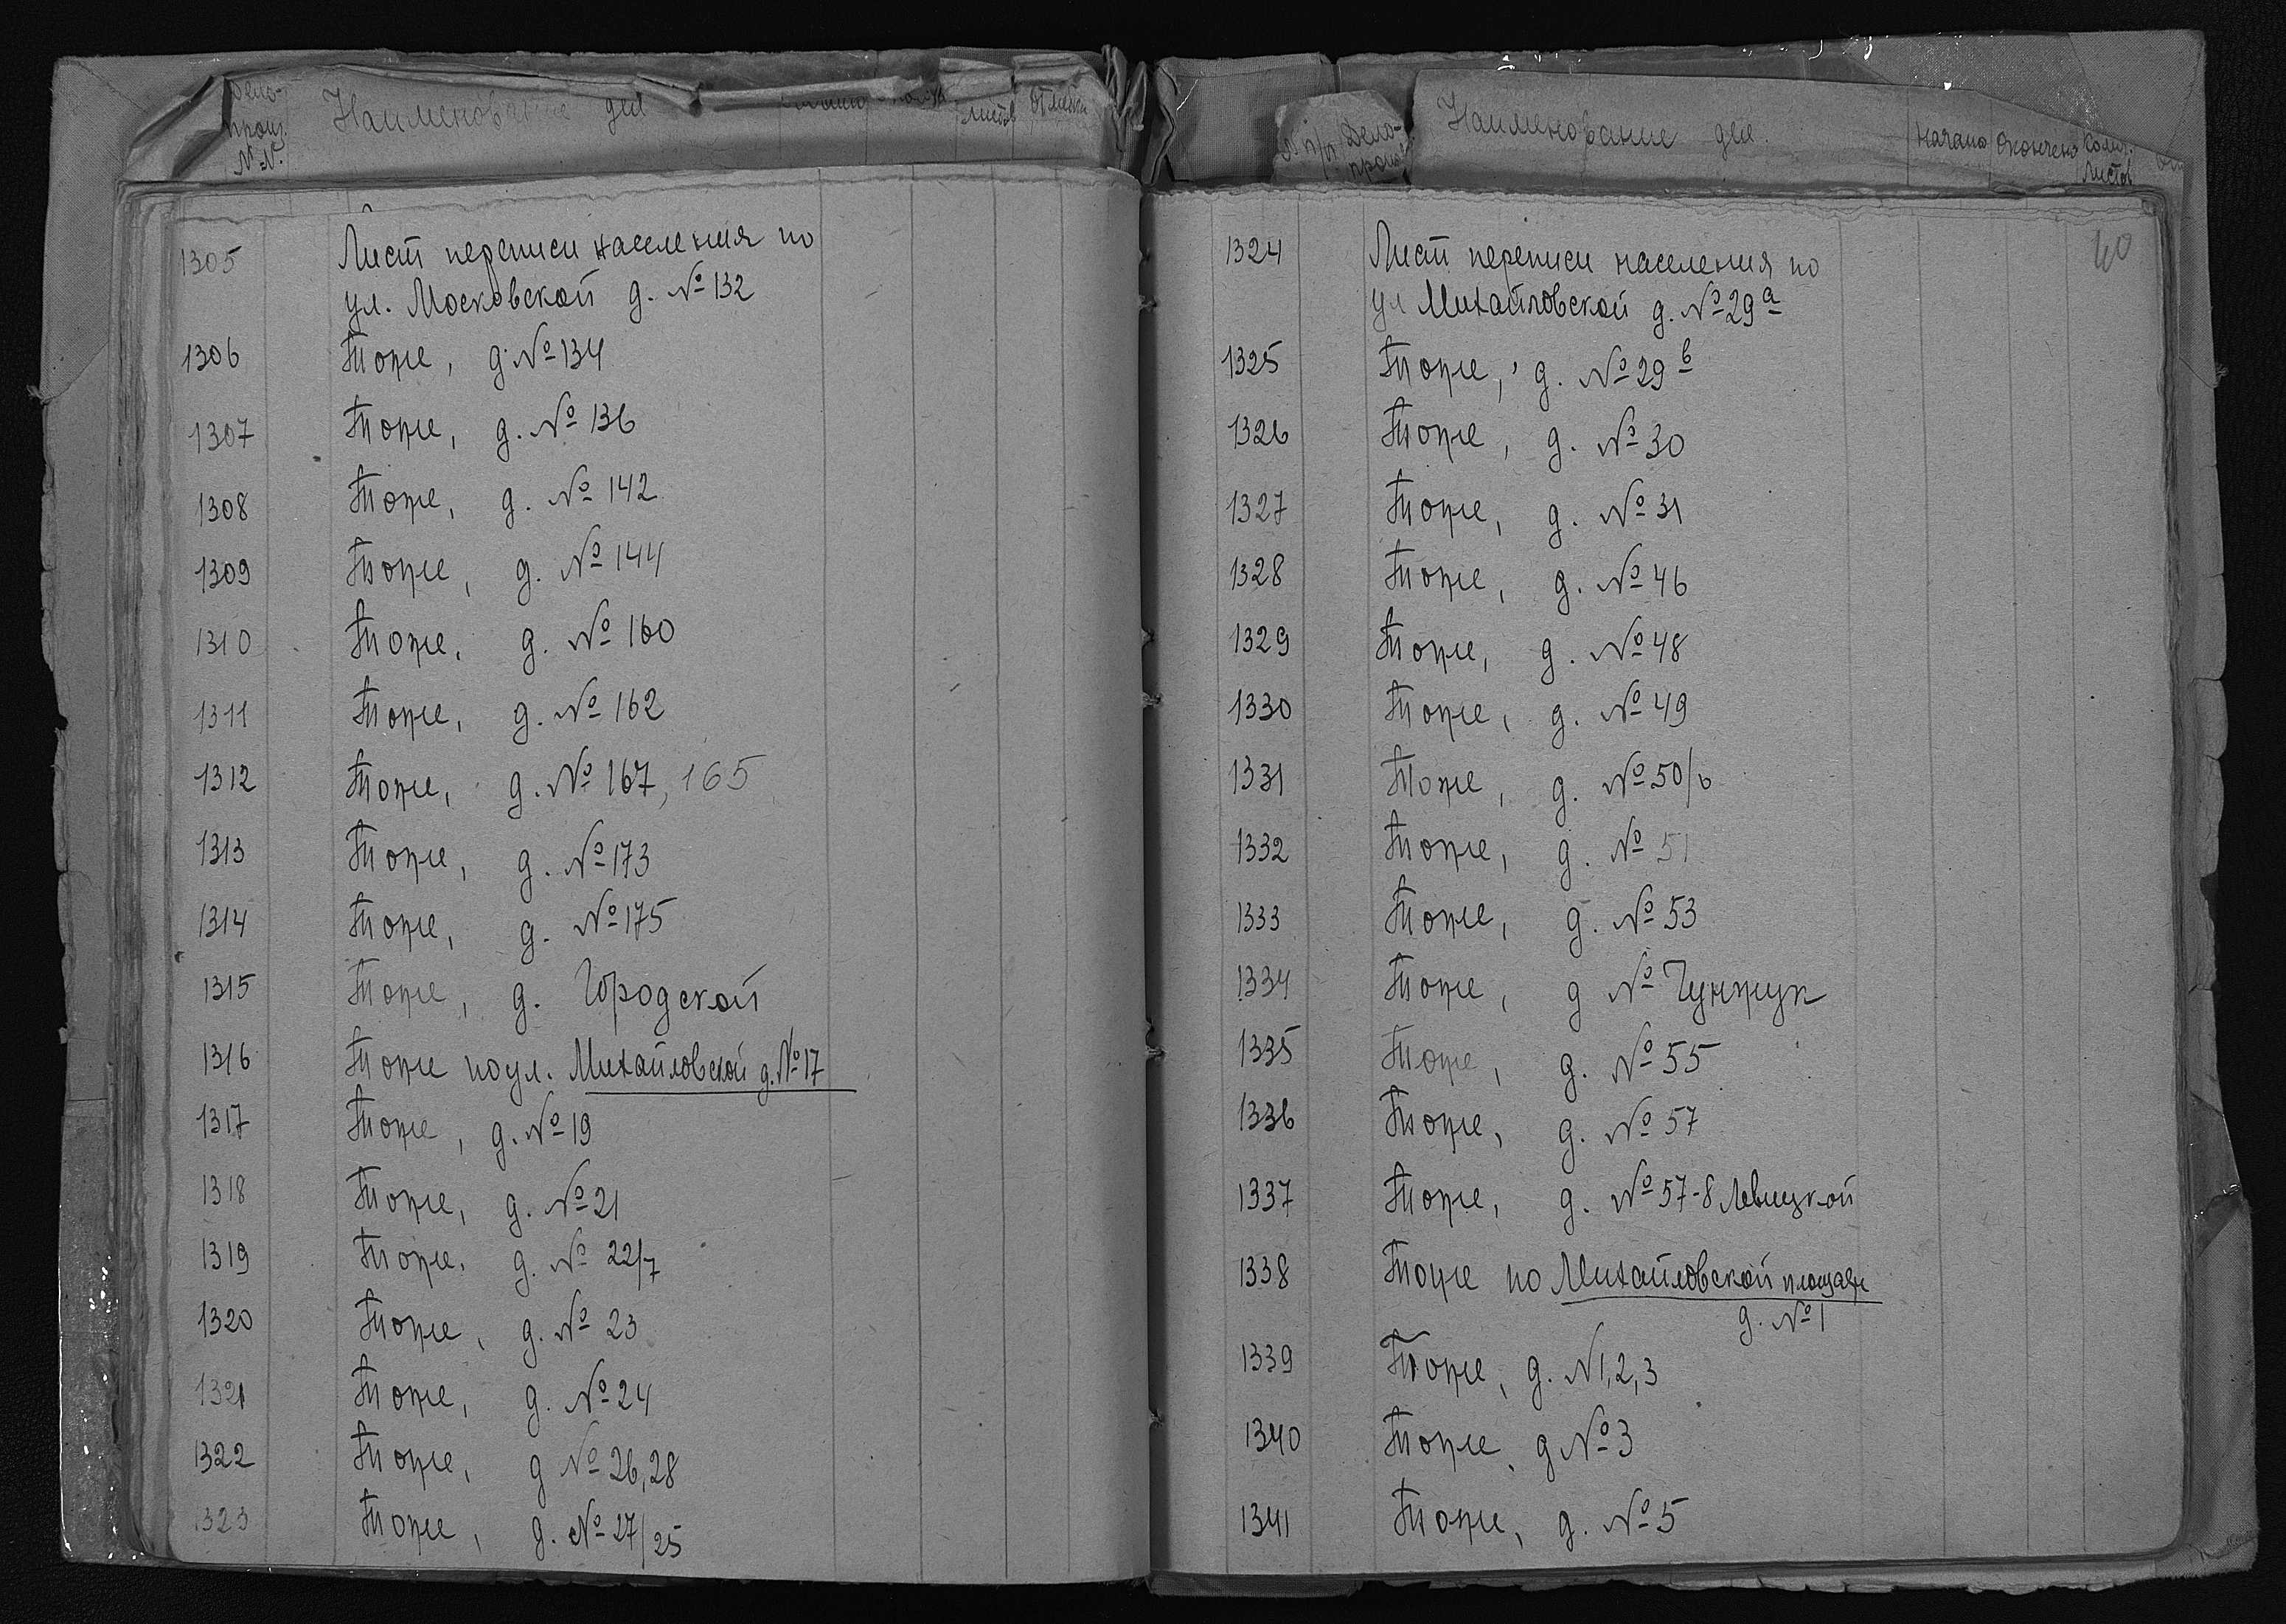 Дело-
произ.
№№.
Наименование дел
листов
отметки
1305 Лист переписи населения по
ул. Московской д. № 132
1306 Тоже, д. № 134
1307 Тоже, д. № 136
1308 Тоже, д. № 142
1309 Тоже, д. № 144
1310 Тоже, д. № 160
1311 Тоже, д. № 162
1312 Тоже, д. № 167, 165
1313 Тоже, д. № 173
1314 Тоже, д. № 175
1315 Тоже, д. Городской
1316 Тоже по ул. Михайловской д. № 17
1317 Тоже, д. № 19
1318 Тоже, д. № 21
1319 Тоже, д. № 22/7
1320 Тоже, д. № 23
1321 Тоже, д. № 24
1322 Тоже, д № 26, 28
1323 Тоже, д. № 27/25
№ п/п
Дело-
произ.
Наименование дел.
Начало
Окончено
Колич.
листов
40
1324 Лист переписи населения по
ул Михайловской д. № 29а
1325 Тоже, д. № 29в
1326 Тоже, д. № 30
1327 Тоже, д. № 31
1328 Тоже, д. № 46
1329 Тоже, д. № 48
1330 Тоже, д. № 49
1331 Тоже, д. № 50/6
1332 Тоже, д. № 51
1333 Тоже, д. № 53
1334 Тоже, д № Гунжук
1335 Тоже, д. № 55
1336 Тоже, д. № 57
1337 Тоже, д. № 57-8 Левицкой
1338 Тоже по Михайловской площади
д. № 1
1339 Тоже, д. N 1, 2, 3
1340 Тоже, д № 3
1341 Тоже, д. № 5